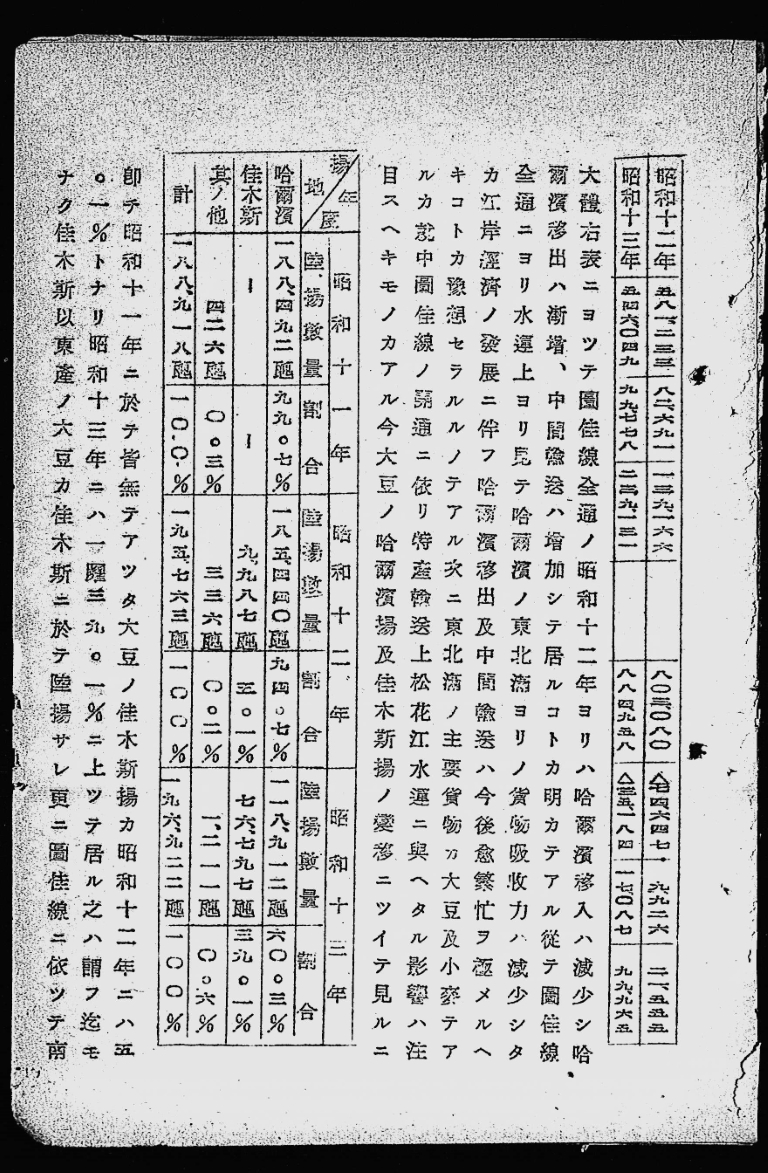 昭和十二年 五八一、二三三 八二、六九一 一三九、一六六 八〇三、〇八〇 △七四六四七 九九二六 二一、五五五
昭和十三年 五四六、〇四九 九九、七七八 二三九、一三一 八八四、九五八 △三五、一八四 一七〇八七 九九、九六五
大體右表ニヨツテ圖佳線全通ノ昭和十二年ヨリハ哈爾濱移入ハ減少シ哈
爾濱移出ハ漸増、中間輸送ハ増加シテ居ルコトカ明カテアル從テ圖佳線
全通ニヨリ水運上ヨリ見テ哈爾濱ノ東北滿ヨリノ貨物吸收力ハ減少シタ
カ江岸經濟ノ發展ニ伴フ哈爾濱移出及中間輸送ハ今後愈繁忙ヲ極メルヘ
キコトカ豫想セラルルノテアル次ニ東北滿ノ主要貨物カ大豆及小麥テア
ルカ就中圖佳線ノ開通ニ依リ特産輸送上松花江水運ニ與ヘタル影響ハ注
目スヘキモノカアル今大豆ノ哈爾濱揚及佳木斯揚ノ變移ニツイテ見ルニ
揚地 年度 昭和十一年 昭和十二年 昭和十三年
陸揚數量 割合 陸揚數量 割合 陸揚數量 割合
哈爾濱 一八八、四九二瓲 九九。七% 一八五、四四〇瓲 九四。七% 一一八、九一二瓲 六〇。三%
佳木斯 ー ー 九、九八七瓲 五。一% 七六、七九七瓲 三九。一%
其ノ他 四二六瓲 〇。三% 三三六瓲 〇。二% 一、二一一瓲 〇。六%
計 一八八、九一八瓲 一〇〇.〇% 一九五、七六三瓲 一〇〇% 一九六、九二二瓲 一〇〇%
卽チ昭和十一年ニ於テ皆無テアツタ大豆ノ佳木斯揚カ昭和十二年ニハ五
。一%トナリ昭和十三年ニハ一躍三九。一%ニ上ツテ居ル之ハ謂フ迄モ
ナク佳木斯以東産ノ大豆カ佳木斯ニ於テ陸揚サレ更ニ圖佳線ニ依ツテ南